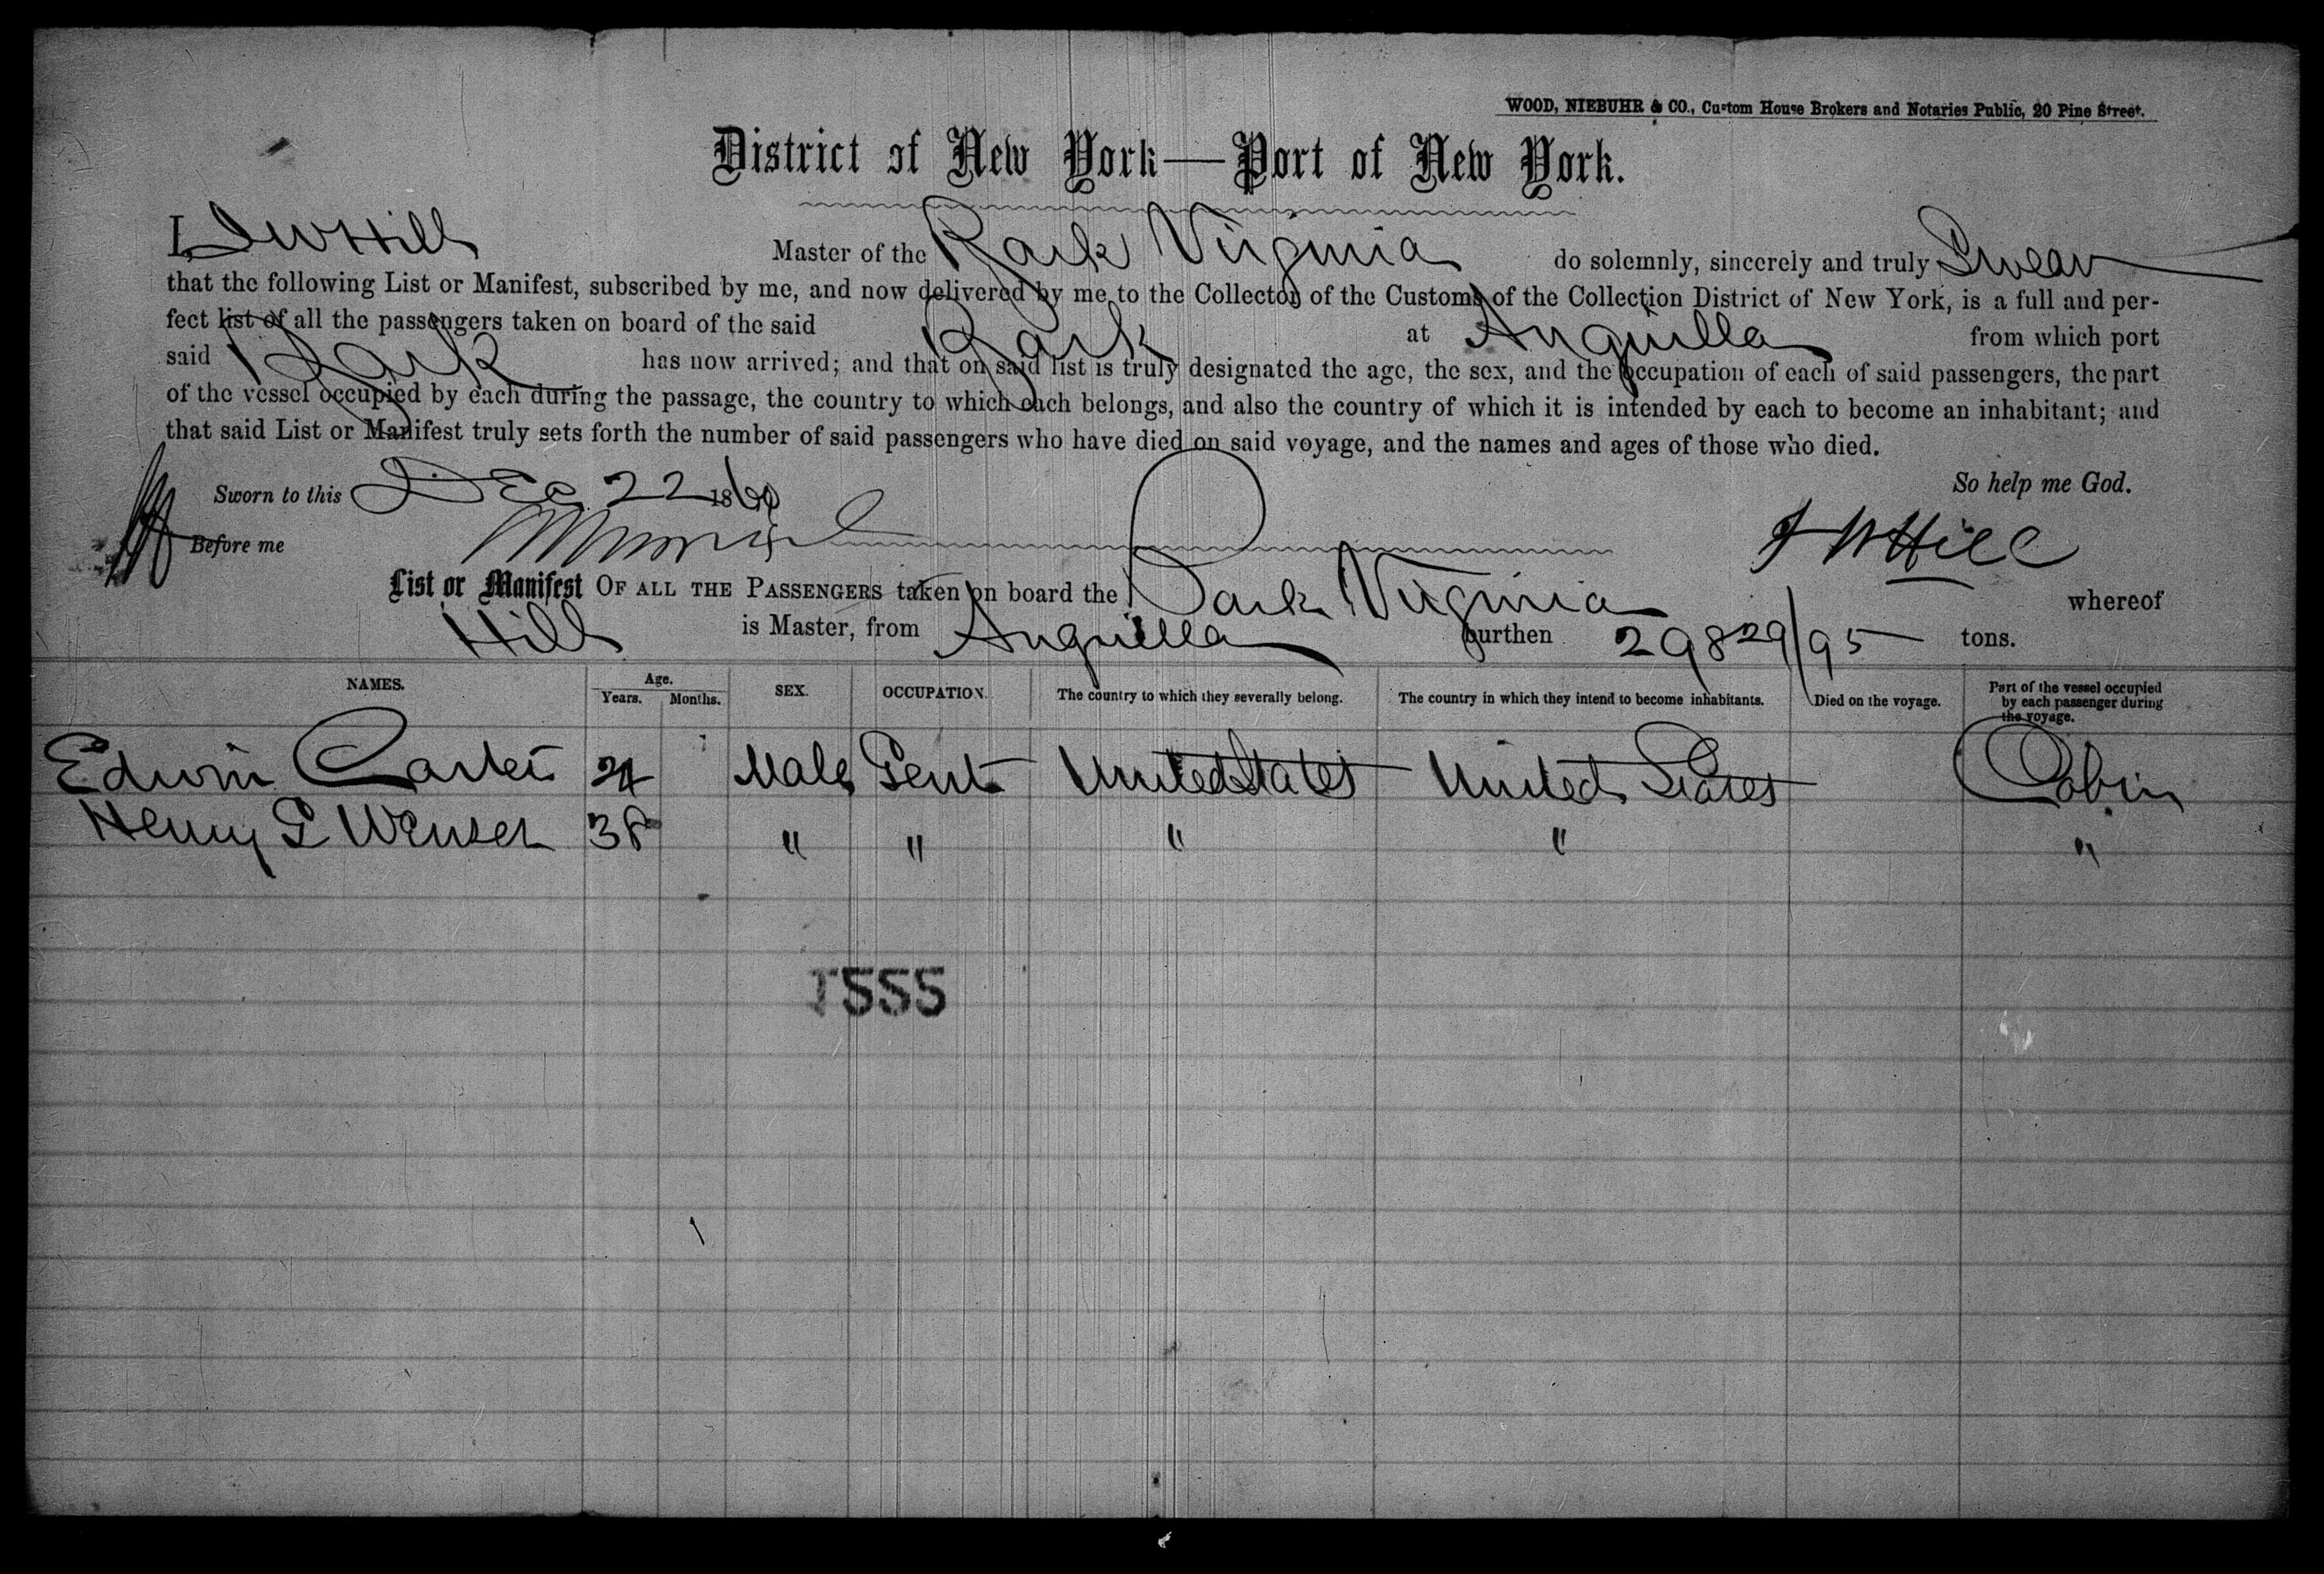 WOOD, NIEBUHR & CO., Custom House Brokers and Notaries Public, 20 Pine Street.
District of New York—Port of New York.
I, J W Hill Master of the Bark Virginia do solemnly, sincerely and truly Swear
that the following List or Manifest, subscribed by me, and now delivered by me to the Collector of the Customs of the Collection District of New York, is a full and per-
fect list of all the passengers taken on board of the said Bark at Anguilla from which port
said Bark has now arrived; and that on said list is truly designated the age, the sex, and the occupation of each of said passengers, the part
of the vessel occupied by each during the passage, the country to which each belongs, and also the country of which it is intended by each to become an inhabitant; and
that said List or Manifest truly sets forth the number of said passengers who have died on said voyage, and the names and ages of those who died.
Sworn to this Dec 22 18 So help me God.
Before me J W Hill
List or Manifest OF ALL THE PASSENGERS taken on board the Bark Virginia whereof
Hill is Master, from Anguilla burthen 298 29/95 tons.
NAMES. Age. Years. Months. SEX. OCCUPATION. The country to which they severally belong. The country in which they intend to become inhabitants. Died on the voyage. Part of the vessel occupied by each passenger during the voyage.
Edwin Carter Male Gent United States United States Cabin
Henry 38 " " " " "
1555